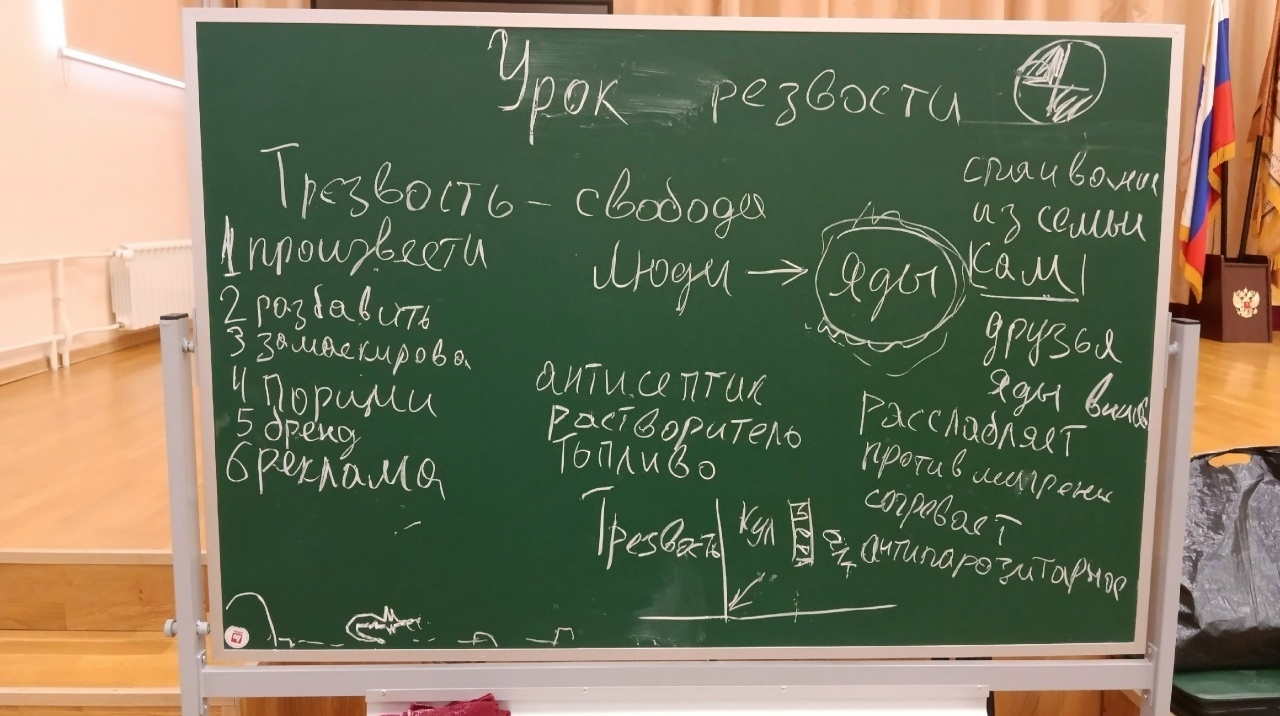 Урок резвости
Трезвость – свобода
1 произвести
2 разбавить
3 замаскирова
4
5 бренд
6 реклама
Люди → Яды
спаивание
из семьи
КАМ
друзья
Яды
антисептик
растворитель
топливо
Расслабляет
против мигрени
согревает
антипаразитарное
Трезвость
Кул